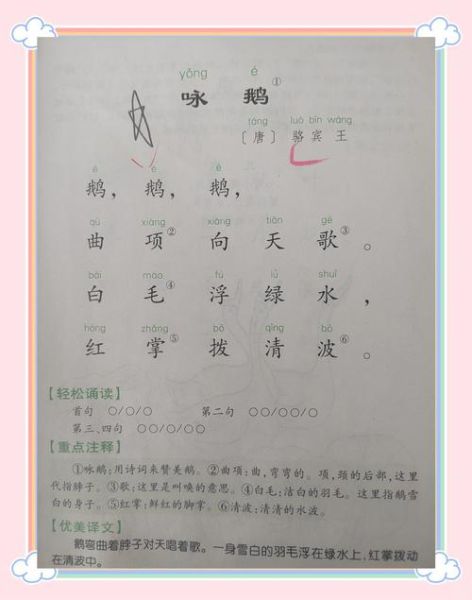 yǒng é
咏 鹅①
táng luò bīn wáng
〔唐〕 骆 宾 王
é é é
鹅，鹅，鹅，
qū xiàng xiàng tiān gē
曲 项② 向 天 歌③。
bái máo fú lǜ shuǐ
白 毛④ 浮 绿 水，
hóng zhǎng bō qīng bō
红 掌⑤ 拨 清 波⑥。
【轻松诵读】
首句 ○/○/○ 第二句 ○○/○○/○
第三、四句 ○○/○/○○
【重点注释】
①咏鹅:用诗词来赞美鹅。②曲项:曲,弯弯的。项,颈的后部,这里
代指脖子。③歌:这里是叫唤的意思。④白毛:洁白的羽毛。这里指鹅雪
白的身子。⑤红掌:鲜红的脚掌。⑥清波:清清的水波。
【优美译文】
鹅弯曲着脖子对天唱着歌。一身雪白的羽毛浮在绿水上,红掌拨动
在清波中。